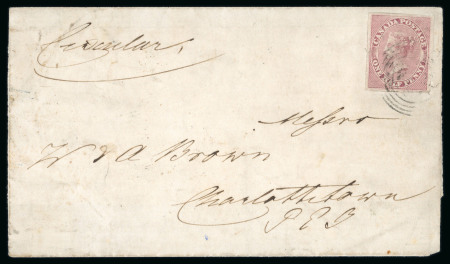 Circular,
CANADA POSTAGE
Messrs
W & A Brown
Charlottetown
P E I